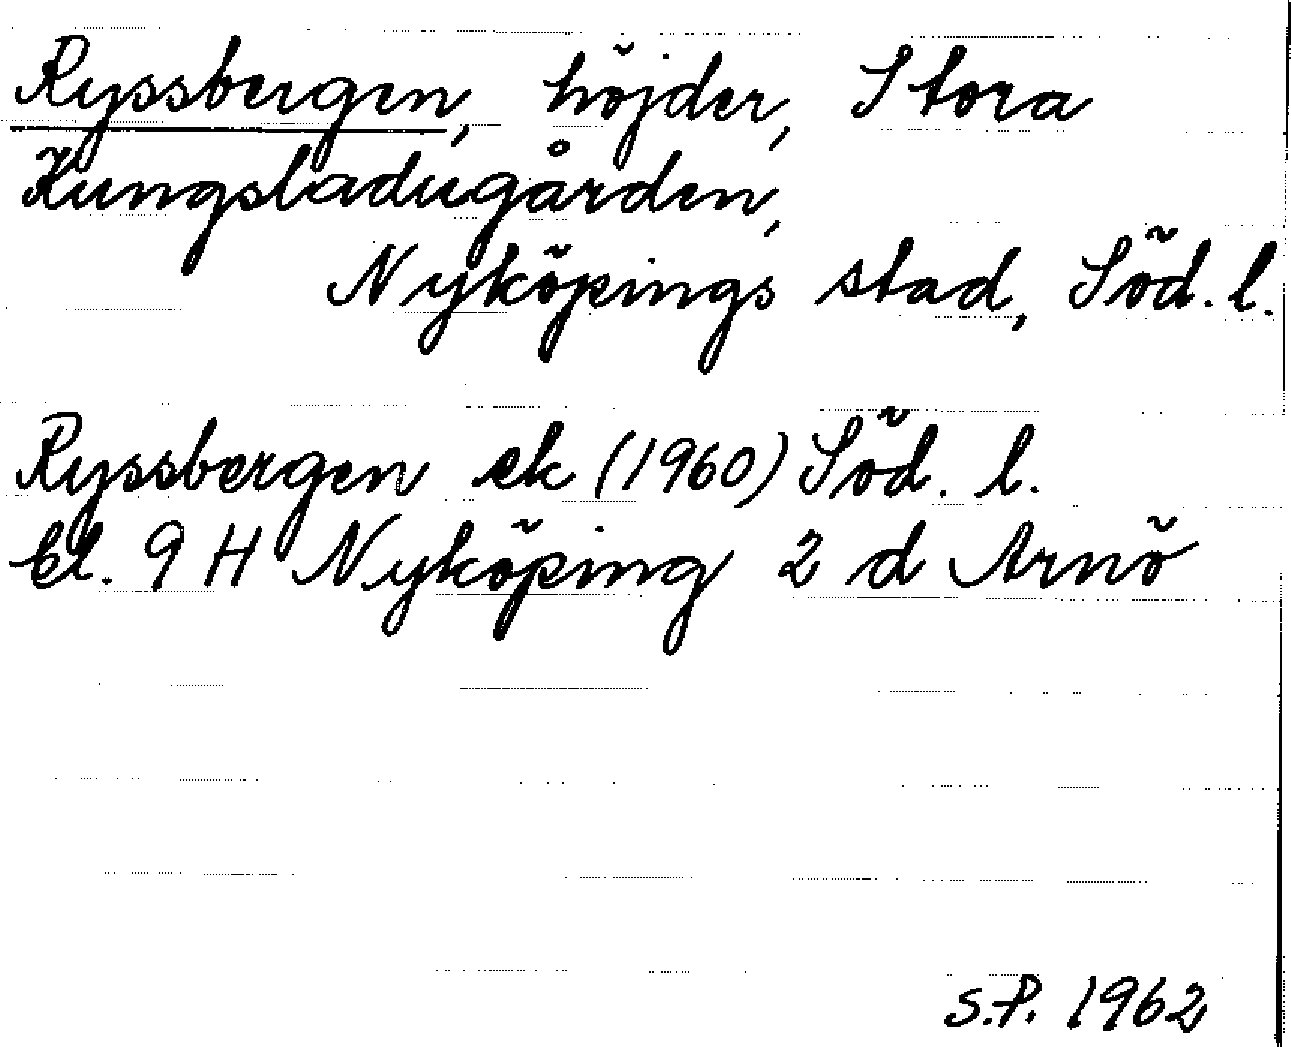 Ryssbergen, höjder, Stora
Kungsladugården,
Nyköpings stad, Söd. l.
Ryssbergen ek (1960) Söd. l.
bl. 9 H Nyköping 2 d Arnö
S.P. 1962